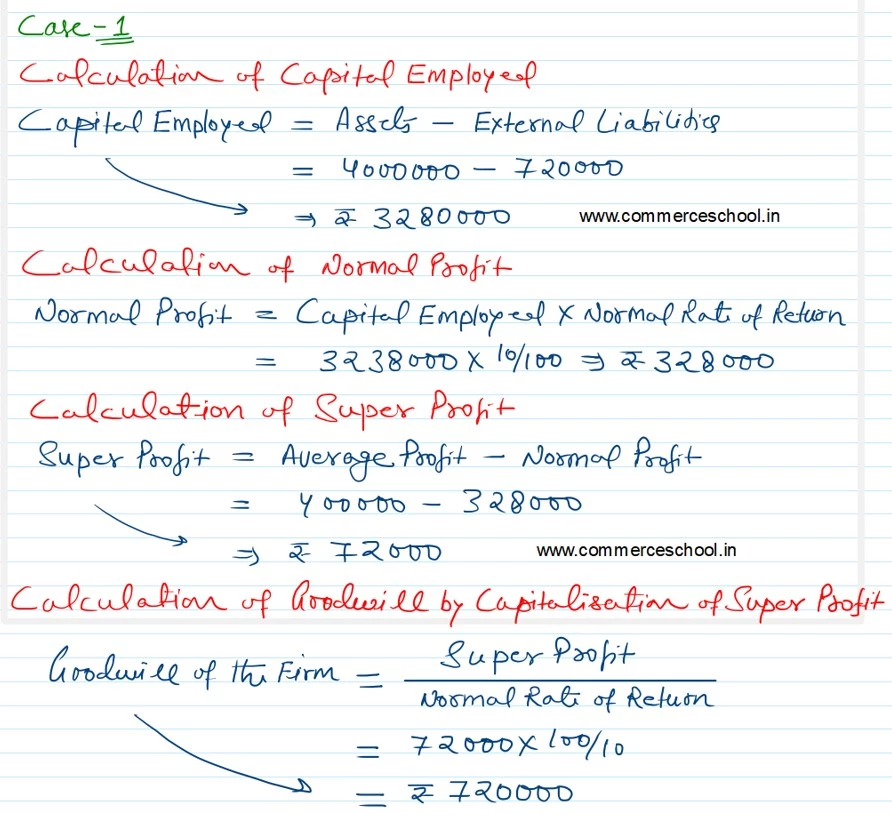 Case-1
Calculation of Capital Employed
Capital Employed = Assets - External Liabilities
= 4000000 - 720000
⇒ ₹ 3280000 www.commerceschool.in
Calculation of Normal Profit
Normal Profit = Capital Employed x Normal Rate of Return
= 3238000 x 10/100 ⇒ ₹ 328000
Calculation of Super Profit
Super Profit = Average Profit - Normal Profit
= 400000 - 328000
⇒ ₹ 72000 www.commerceschool.in
Calculation of Goodwill by Capitalisation of Super Profit
Goodwill of the Firm = Super Profit
Normal Rate of Return
= 72000 x 100/10
= ₹ 720000